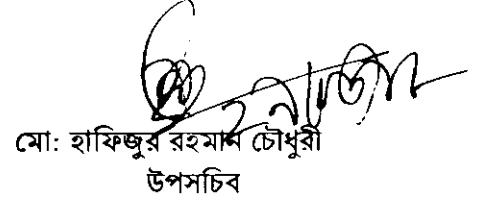 মো: হাফিজুর রহমান চৌধুরী
উপসচিব